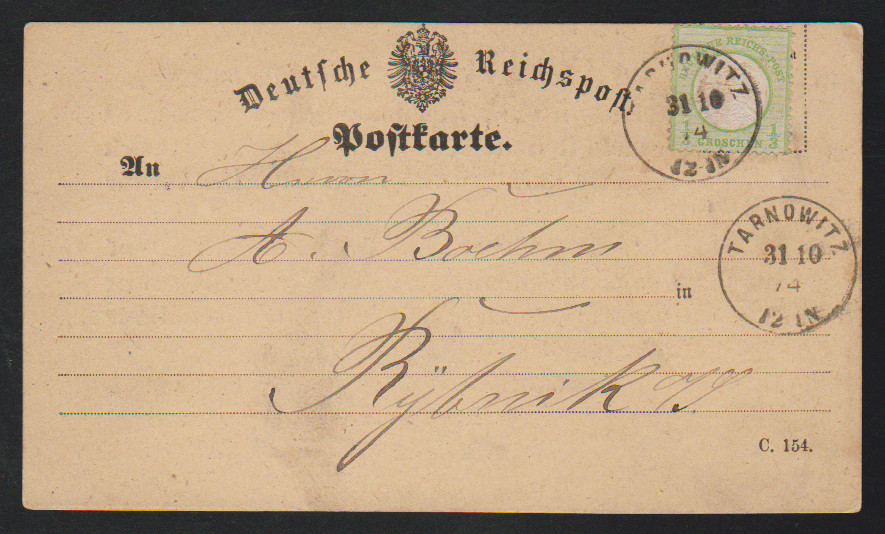 Deutsche Reichspost
Postkarte.
DEUTSCHE REICHS-POST
1/3 GROSCHEN 1/3
TARNOWITZ
31 10
74
An Herrn
A. Boehm
in
TARNOWITZ
31 10
74
12 1N
Rÿbnik
C. 154.